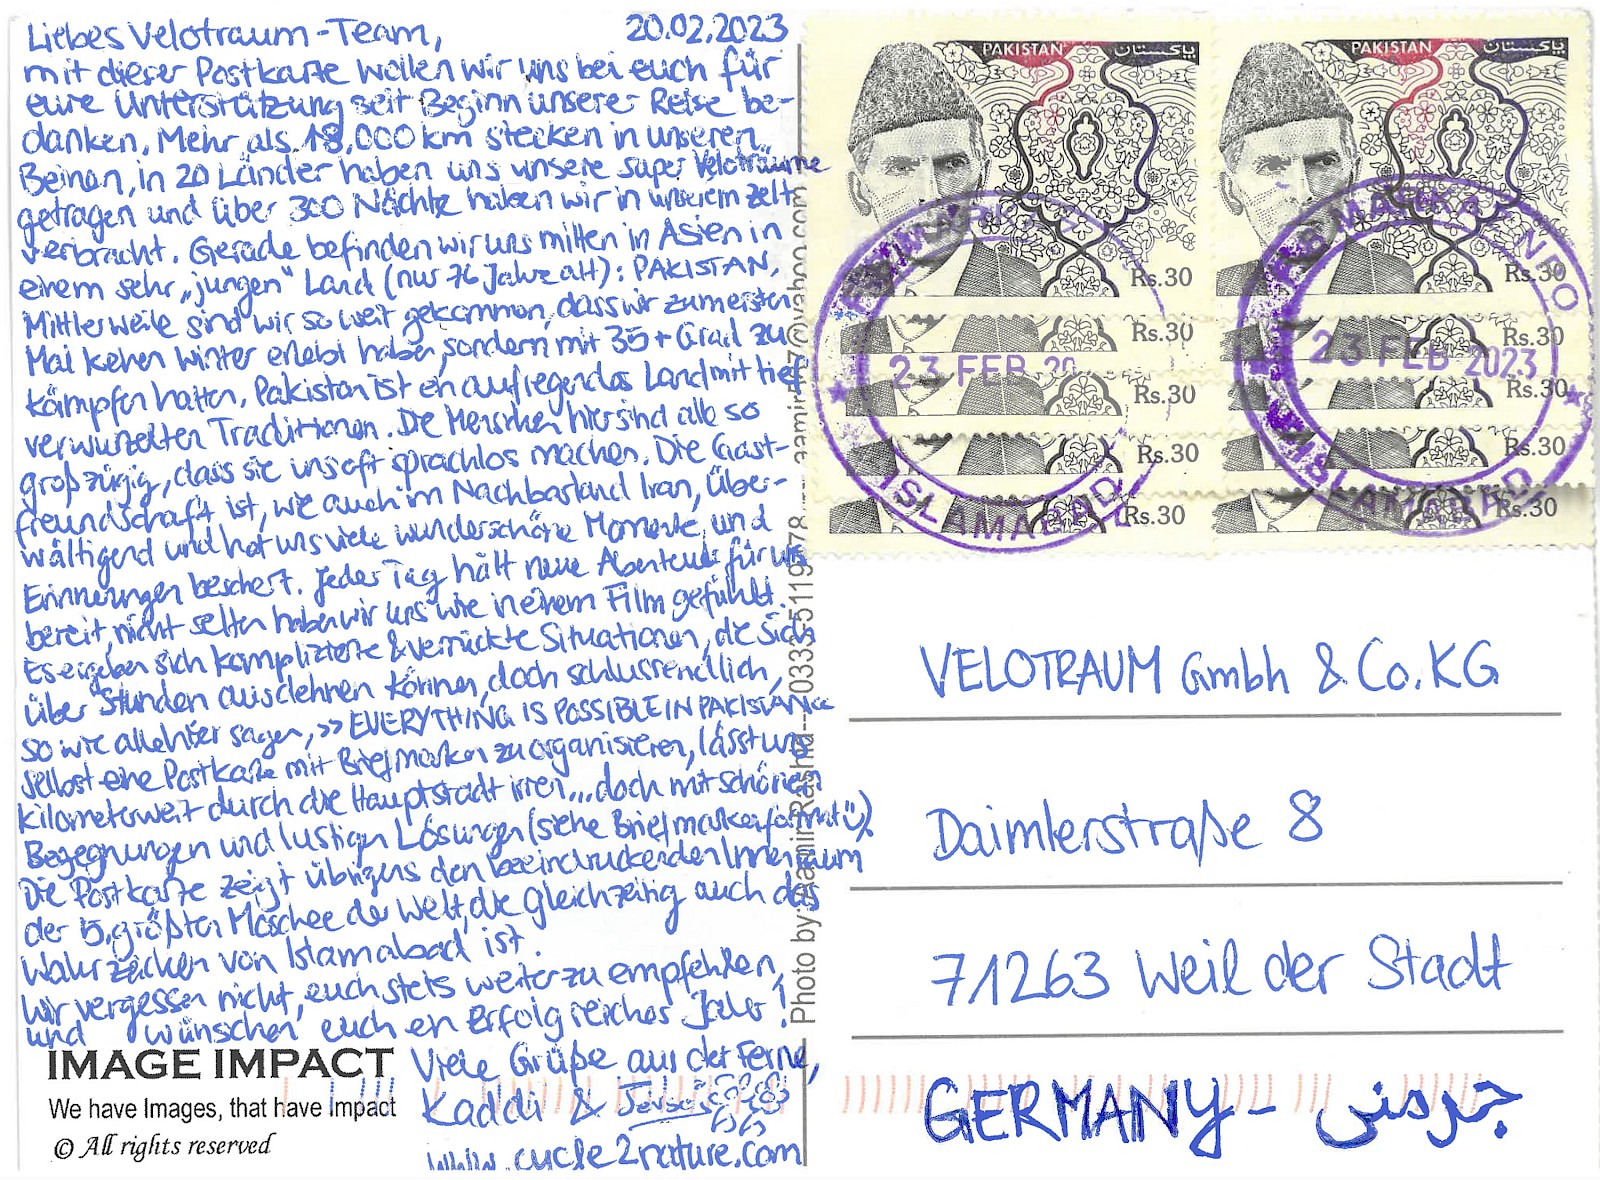 Liebes Velotraum-Team, 20.02.2023
mit dieser Postkarte wollen wir uns bei euch für
eure Unterstützung seit Beginn unserer Reise be-
danken. Mehr als 18.000 km stecken in unseren
Beinen, in 20 Länder haben uns unsere super Veloträume
getragen und über 300 Nächte haben wir in unserem Zelt
verbracht. Gerade befinden wir uns mitten in Asien in
einem sehr „jungen" Land (nur 76 Jahre alt): PAKISTAN.
Mittlerweile sind wir so weit gekommen, dass wir zum ersten
Mal keinen Winter erlebt haben, sondern mit 35+ Grad zu
kämpfen hatten. Pakistan ist ein aufregendes Land mit tief
verwurzelten Traditionen. Die Menschen hier sind alle so
großzügig, dass sie uns oft sprachlos machen. Die Gast-
freundschaft ist, wie auch im Nachbarland Iran, über-
wältigend und hat uns viele wunderschöne Momente und
Erinnerungen beschert. Jeder Tag hält neue Abenteuer für uns
bereit, nicht selten haben wir uns wie in einem Film gefühlt.
Es ergeben sich komplizierte & verrückte Situationen, die sich
über Stunden ausdehnen können, doch schlussendlich,
so wie alle hier sagen, >> EVERYTHING IS POSSIBLE IN PAKISTAN<<
selbst eine Postkarte mit Briefmarken zu organisieren, lässt uns
kilometerweit durch die Hauptstadt irren... doch mit schönen
Begegnungen und lustigen Lösungen (siehe Briefmarkenformat ü).
Die Postkarte zeigt übrigens den beeindruckenden Innenraum
der 5. größten Moschee der Welt, die gleichzeitig auch das
Wahrzeichen von Islamabad ist.
Wir vergessen nicht, euch stets weiterzu empfehlen,
und wünschen euch ein Erfolgreiches Jahr!
Viele Grüße aus der Ferne,
Kaddi &
www.cycle2nature.com
IMAGE IMPACT
We have Images, that have Impact
© All rights reserved
Photo by: Aamir Rashid--0333-5119778
@yahoo.com
PAKISTAN پاکستان
PAKISTAN پاکستان
Rs.30
Rs.30
Rs.30
Rs.30
Rs.30
Rs.30
Rs.30
Rs.30
Rs.30
Rs.30
23 FEB 20
ISLAMABAD
NPO
23 FEB 2023
ISLAMABAD
VELOTRAUM Gmbh & Co. KG
Daimlerstraße 8
71263 Weil der Stadt
GERMANY - جرمنی